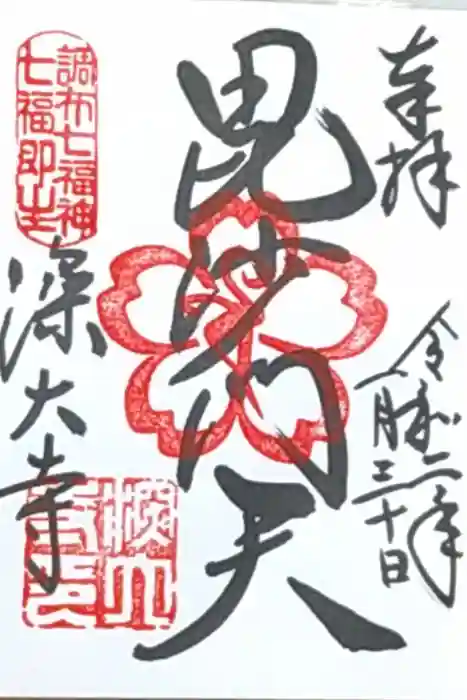 奉拝
令和二年
一月三十日
毘沙門天
調布七福神
七福即生
深大寺